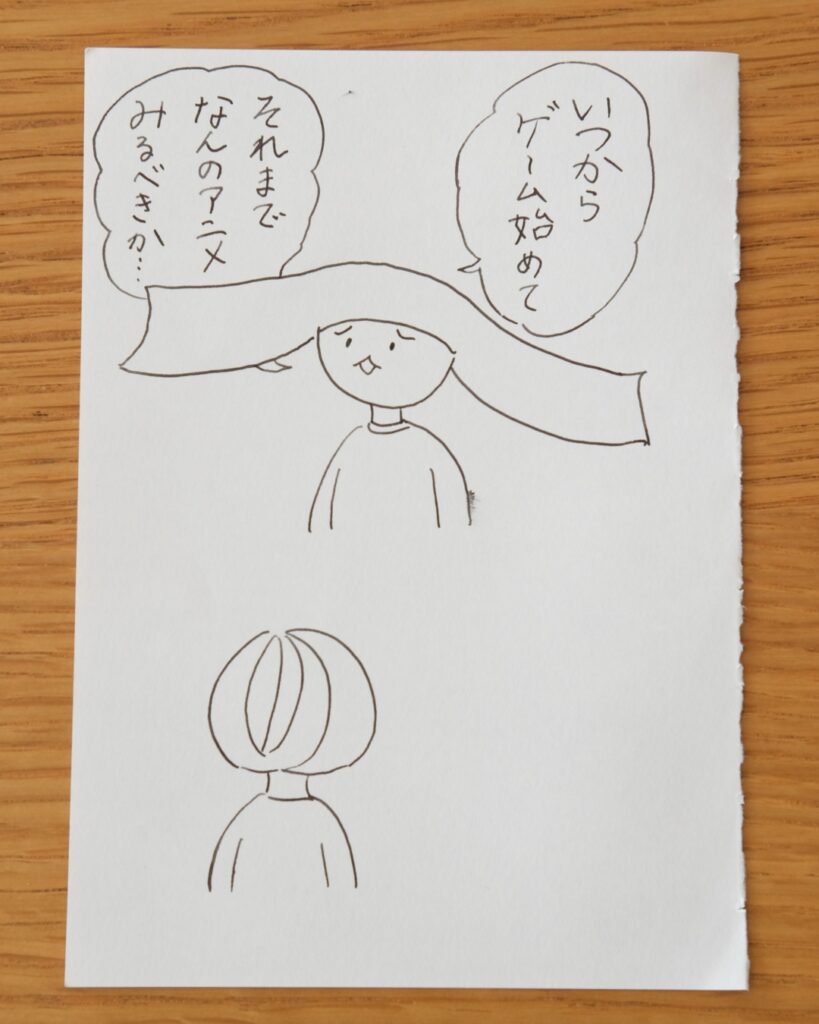 いつから
ゲーム始めて
それまで
なんのアニメ
みるべきか…